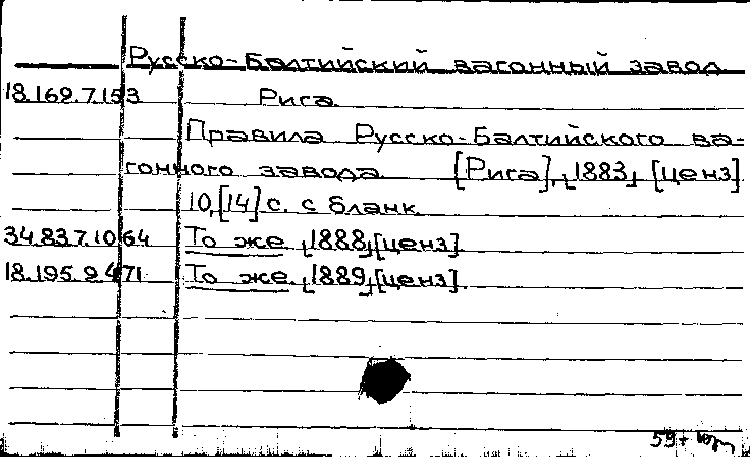 Русско-Балтийский вагонный завод
18.169.7.153 Рига
Правила Русско-Балтийского ва-
гонного завода. [Рига], 1883, [ценз]
10,[14] с. с бланк.
34.837.10.64 То же. 1888, [ценз].
18.195.2.471 То же. 1889, [ценз].
59+